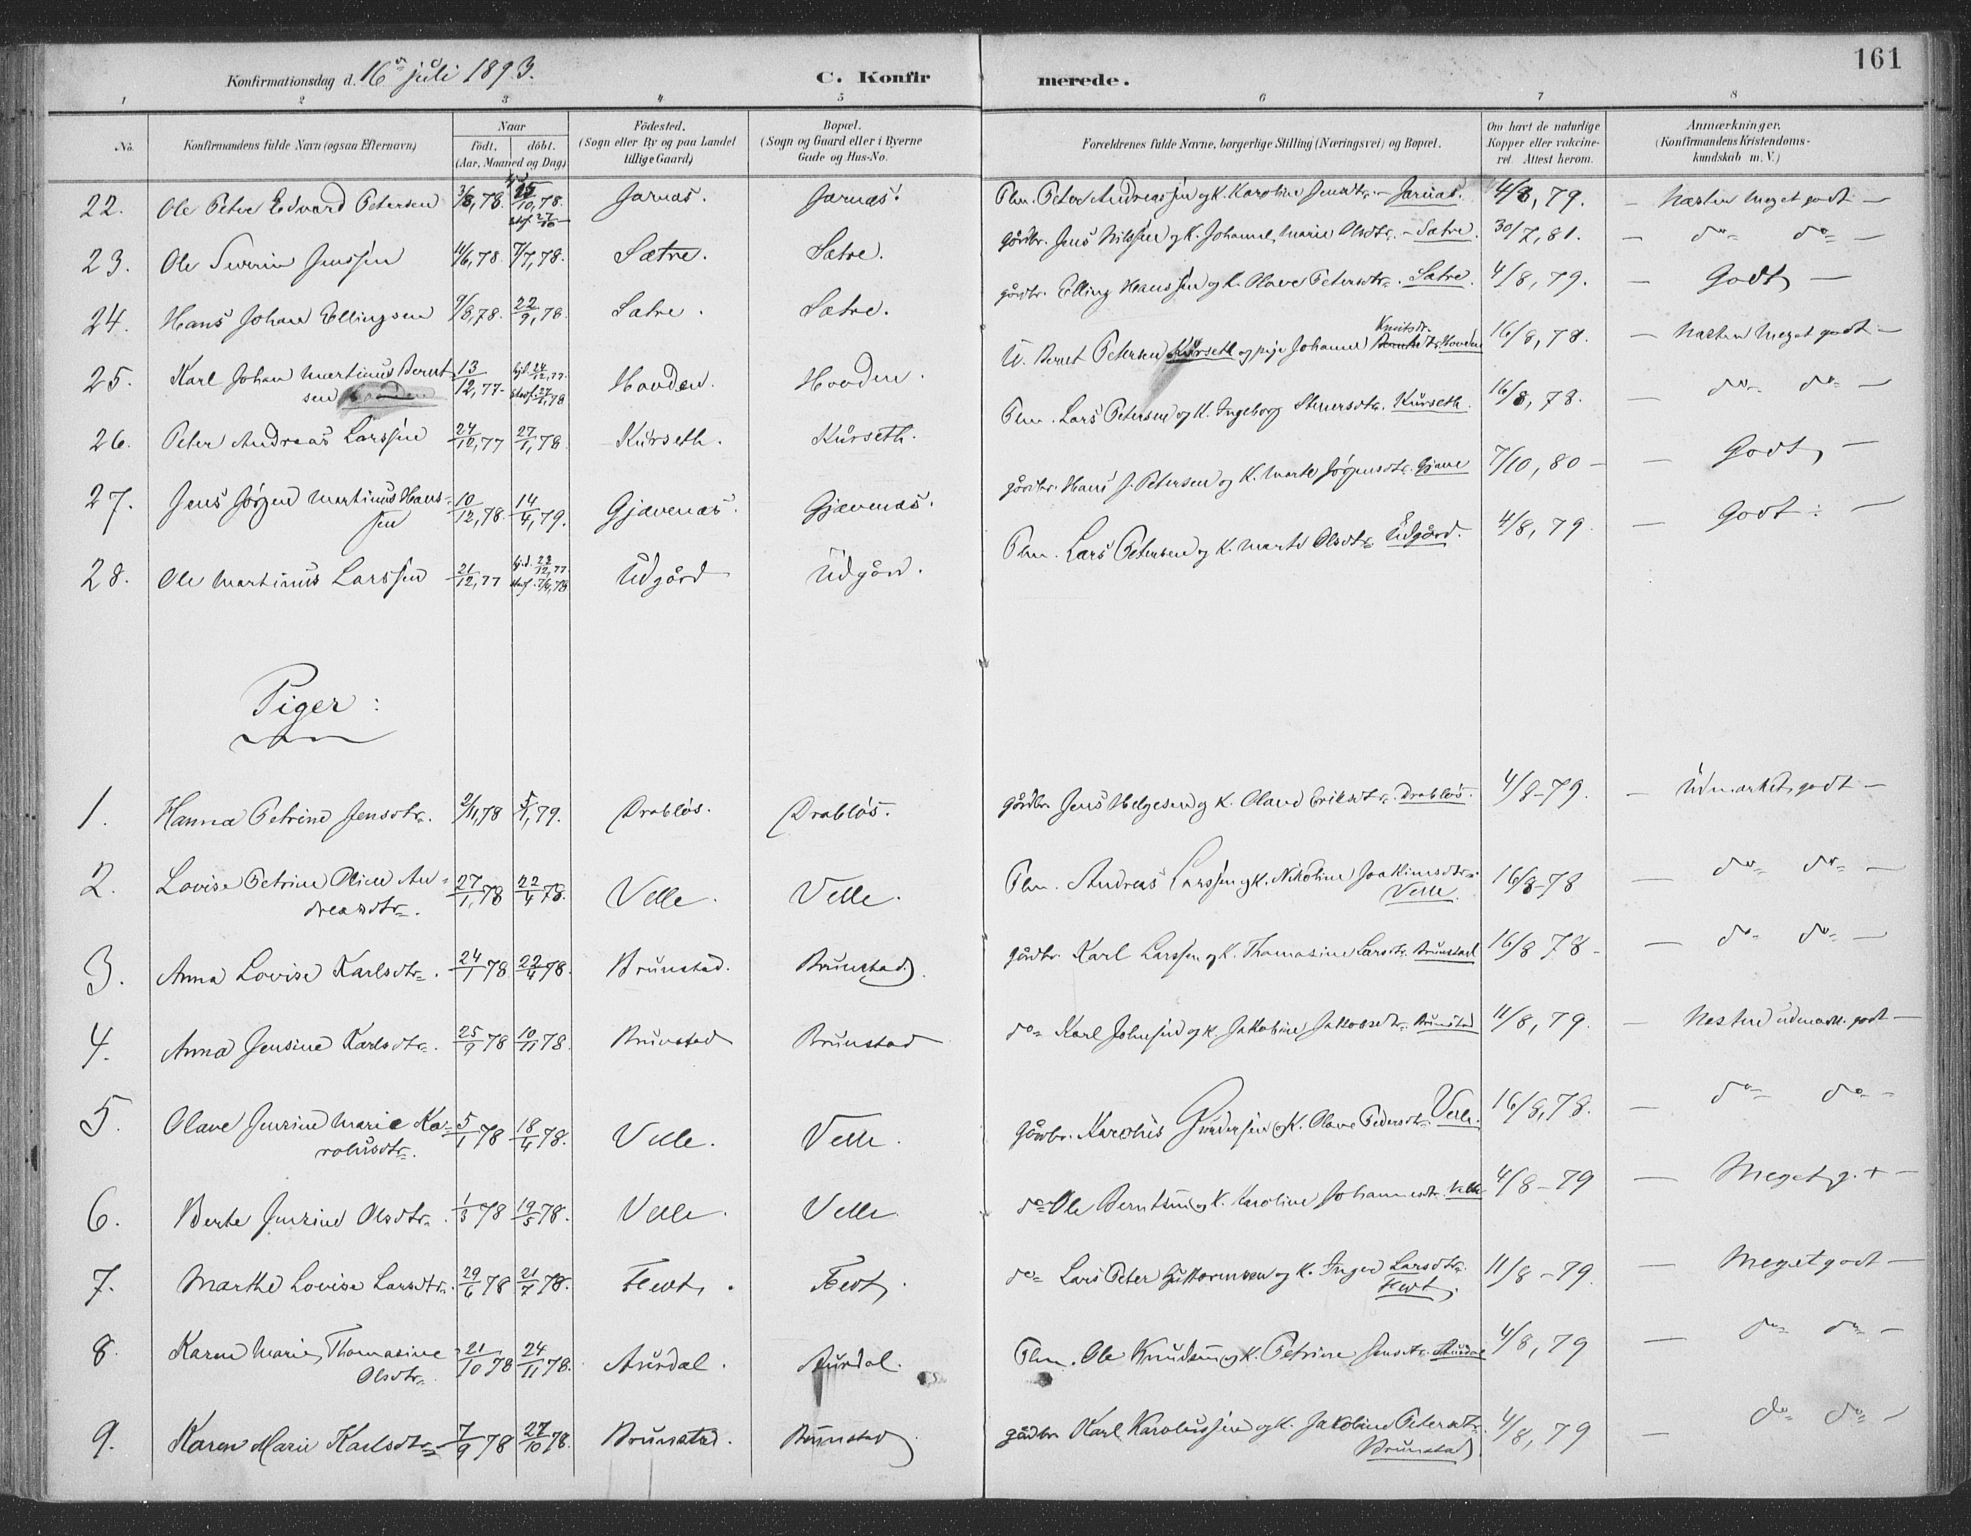 161
Konfirmationsdag d. 16de juli 1893. C. Konfirmerede.
1 2 3 4 5 6 7 8
No. Konfirmandens fulde Navn (ogsaa Efternavn) Naar født. døbt. (Aar, Maaned og Dag) Fødested. (Sogn eller By og paa Landet tillige Gaard) Bopæl. (Sogn og Gaard eller i Byerne Gade og Hus-No. Forældrenes fulde Navne, borgerlige Stilling (Næringsvei) og Bopæl. Om havt de naturlige Kopper eller vakcineret. Attest herom. Anmærkninger. (Konfirmandens Kristendomskundskab m. V.)
22. Ole Peter Edvard Petersen 3/8,78. /10,78. Jarnæs. Jarnæs. Plm. Peter Andreassen og K. Karoline Jensdtr. – Jarnæs. 4/8,79. – Næsten meget godt –
23. Ole Severin Jenssen 4/6,78 7/7,78. Sætre. Sætre. gårdbr. Jens Nilssen og K. Johanne Marie Olsdtr. – Sætre. 30/7,81. – do do –
24. Hans Johan Ellingsen 9/8,78. 22/9,78 Sætre. Sætre. gårdbr. Elling Hanssen og K. Olave Petersdtr. Sætre. 4/8,79. – Godt –
25. Karl Johan Martinus Berntsen 13/12,77 Hovden. Hovden. U. Bernt Petersen Kurseth og pige Johanne Knutsdr. Hovden 16/8,78. – Næsten meget godt –
26. Peter Andreas Larssen 24/12,77 27/1,78 Kurseth. Kurseth. Plm. Lars Petersen og K. Ingeborg Steversdtr. Kurseth. 16/8,78. – do do –
27. Jens Jørgen Martinus Hanssen 10/12,78. 14/4,79. Gjævenæs. Gjævenæs. gårdbr. Hans J. Petersen og K. Marte Jørgensdtr. Gjæve 7/10,80 – – Godt –
28. Ole Martinus Larssen 21/12,77 Udgård Udgård. Plm. Lars Petersen og K. Marte Olsdtr. Udgård. 4/8,79 – Godt. –
Piger:
1. Hanna Petrine Jensdtr. 2/11,78 5/1,79. Drabløs. Drabløs. gårdbr. Jens Helgesen og K. Olave Eriksdtr. Drabløs. 4/8–79. – Udmærket godt –
2. Lovise Petrine Oline Andreasdtr. 27/1,78 22/4 78. Velle. Velle. Plm. Andreas Larssen og K. Nikoline Joakimsdtr. Velle. 16/8–78 – do do –
3. Anna Lovise Karlsdtr. 24/1 78 22/4 78. Brunstad. Brunstad. gårdbr. Karl Larssen og K. Thomasine Larsdtr. Brunstad 16/8 78 – – do do –
4. Anna Jensine Karlsdtr. 25/9 78 10/11 78. Brunstad Brunstad do Karl Johnsen og K. Jakobine Jakobsdtr. Brunstad 11/8,79. – Næsten udmærk. godt –
5. Olave Jensine Marie Karolusdtr. 5/1 78 18/4 78. Velle. Velle. gårdbr. Karolus Gundersen og K. Olave Pedersdtr. Velle. 16/8,78. – do do
6. Berte Jensine Olsdtr. 1/3 78 19/5 78. Velle. Velle. do Ole Berntsen og K. Karoline Johannesdtr. Velle 4/8–79 – Meget g. –
7. Marthe Lovise Larsdtr. 29/6 78 21/7 78. Fevt. Fevt. do Lars Peter Guttormsen og K. Inger Larsdtr. Fevt. 11/8–79. – Meget godt –
8. Karen Marie Thomasine Olsdtr. 21/10 78 24/11 78. Aursdal. Aursdal. Plm. Ole Knudsen og K. Petrine Jensdtr. Aursdal 4/8,79 – do do –
9. Karen Marie Karlsdtr. 7/9 78 27/10 78. Brunstad. Brunstad gårdbr. Karl Karolussen og K. Jakobine Petersdtr. Brunstad 4/8,79 – do do –